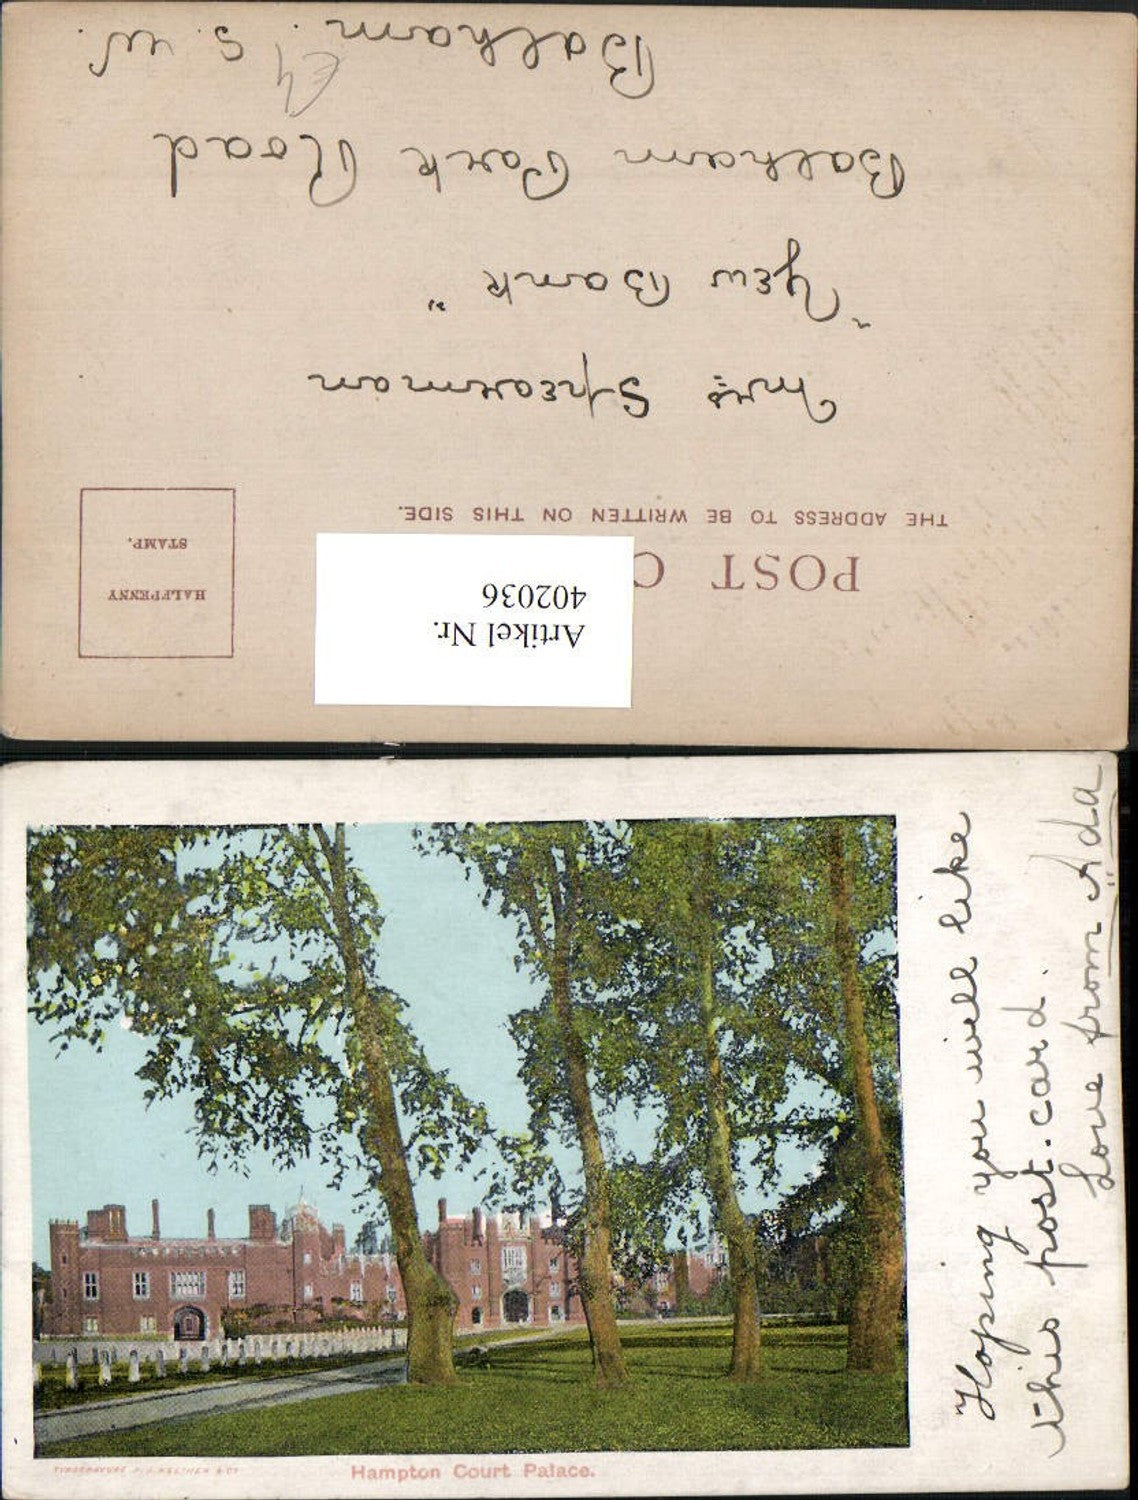 POST C
THE ADDRESS TO BE WRITTEN ON THIS SIDE.
HALFPENNY
STAMP.
Artikel Nr.
402036
Mrs Spearman
"Yew Bank"
Balham Park Road
Balham. S. W.
Hampton Court Palace.
Hoping you will like
this post-card.
Love from Ada